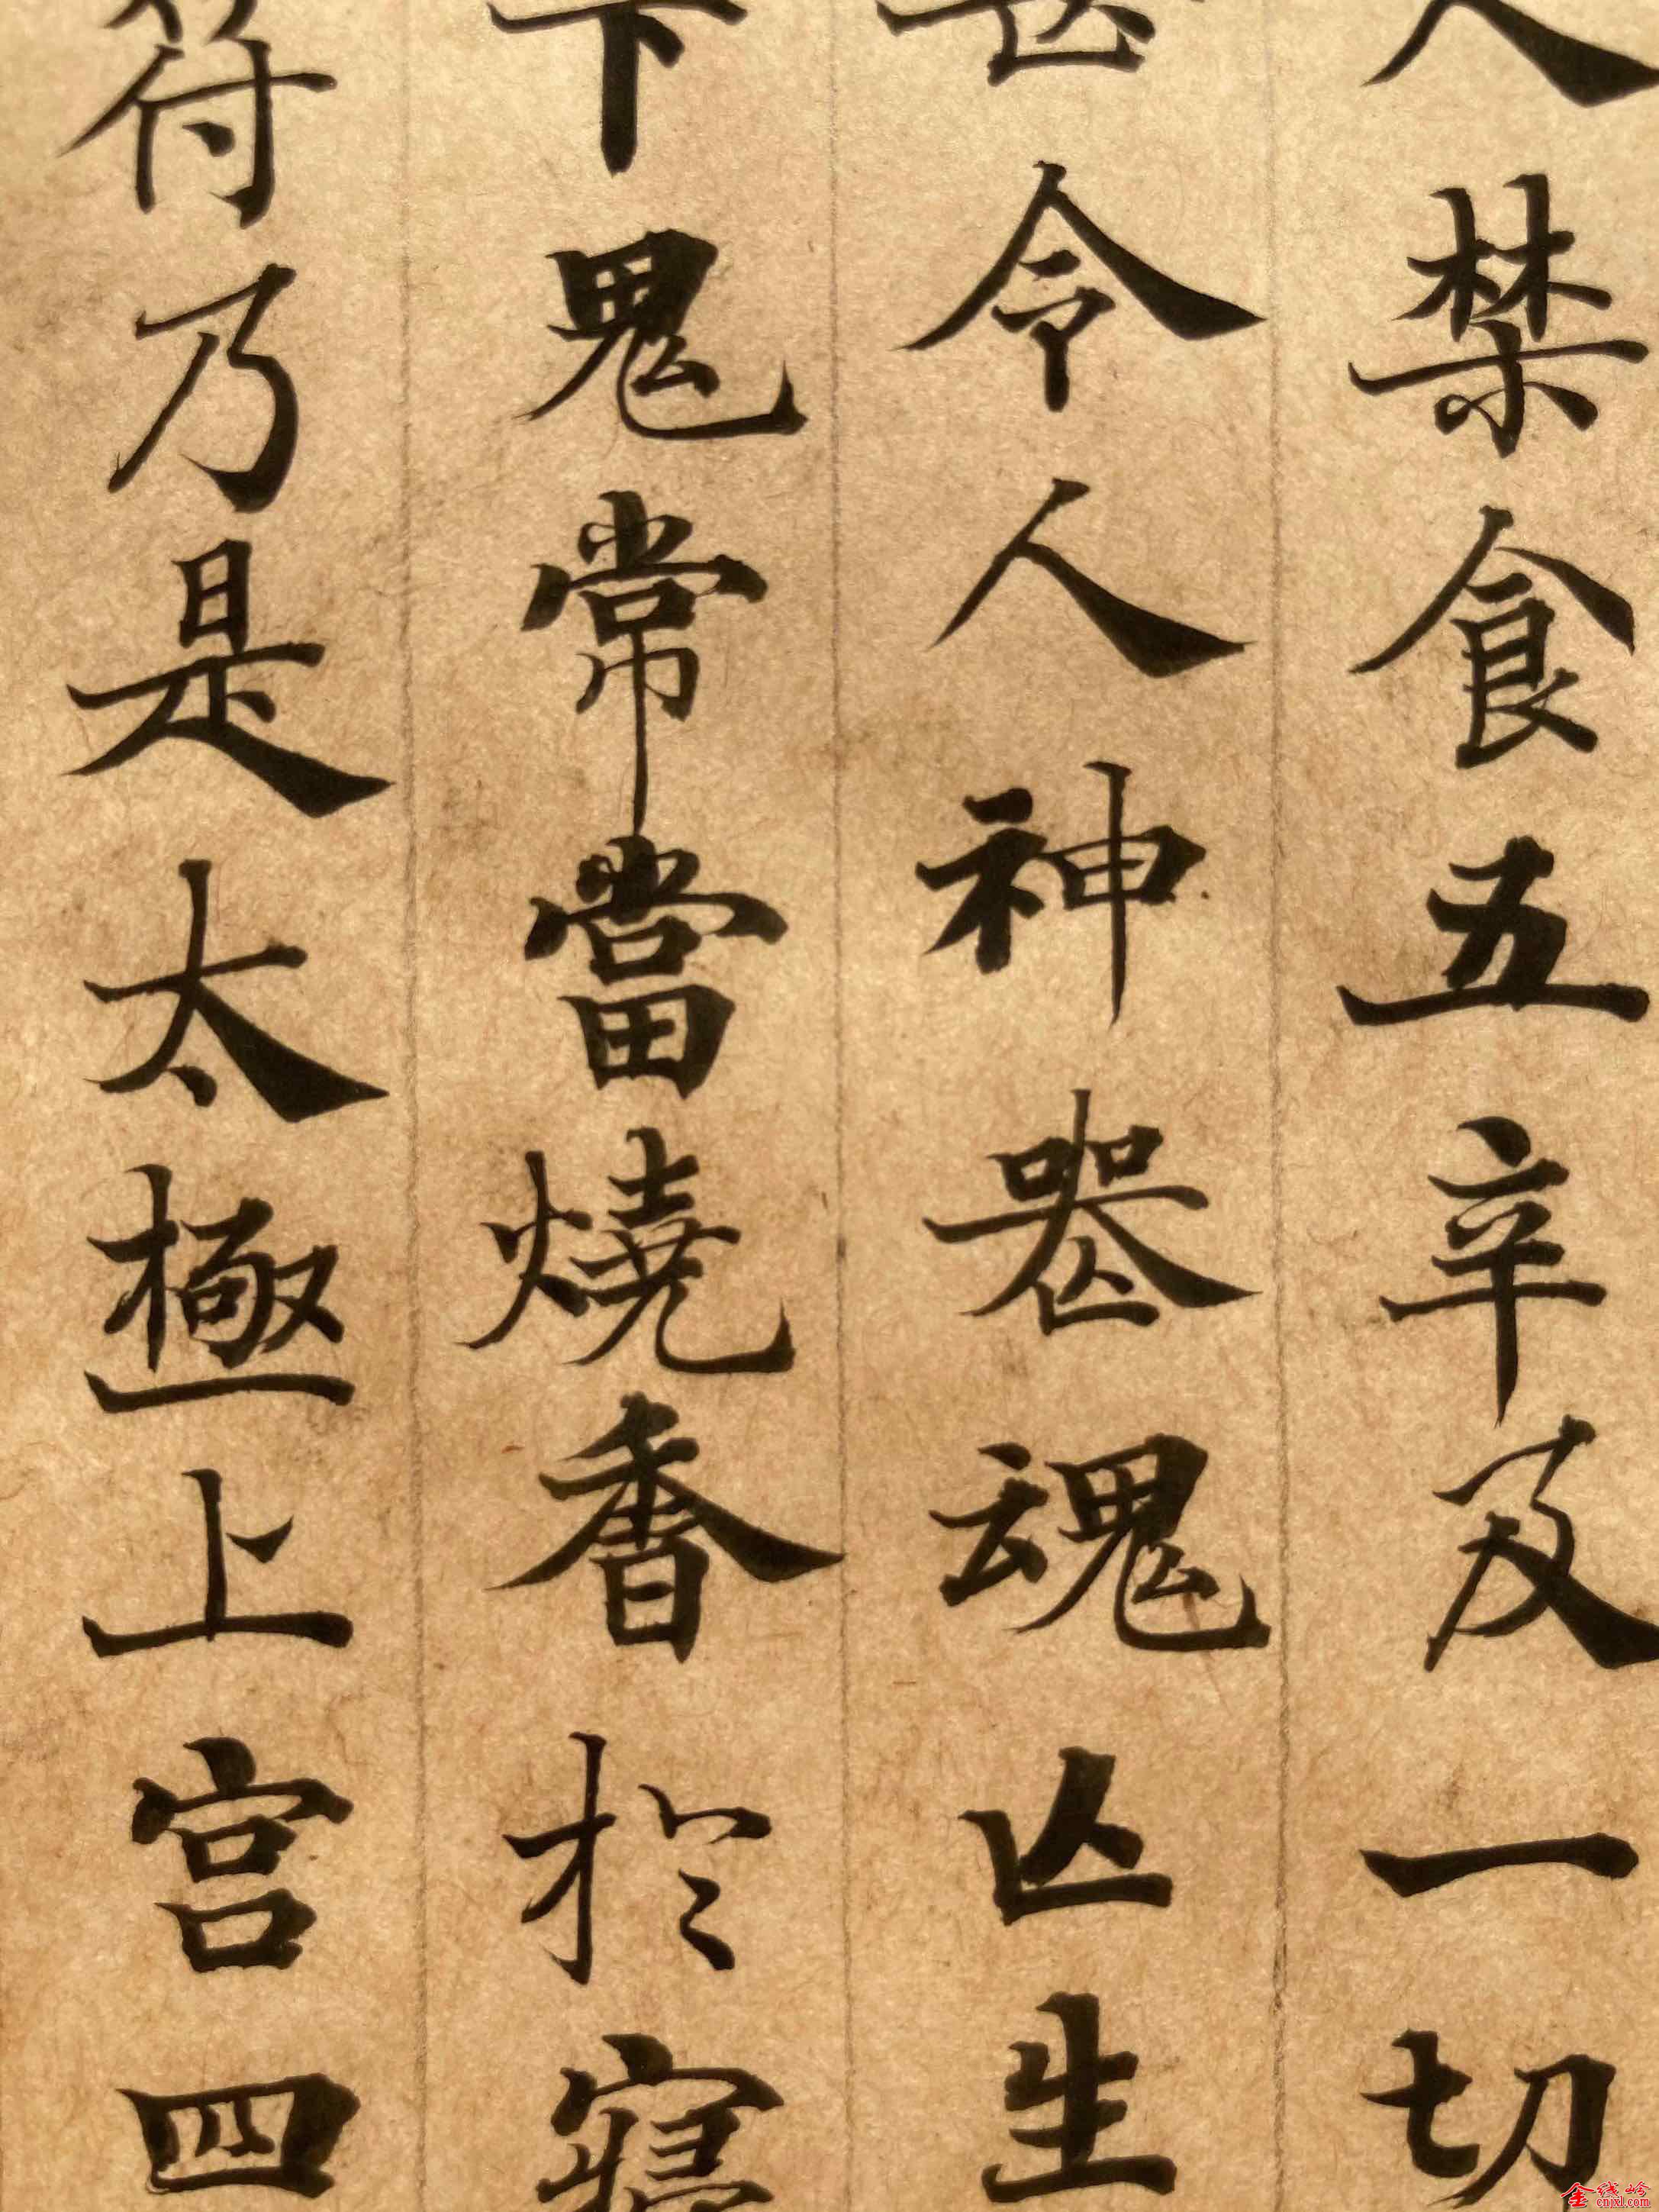 人禁食五辛及一切
甚令人神器魂亡生
下鬼常當燒香於寢
符乃是太極上宫四
金线岭
cnixl.com